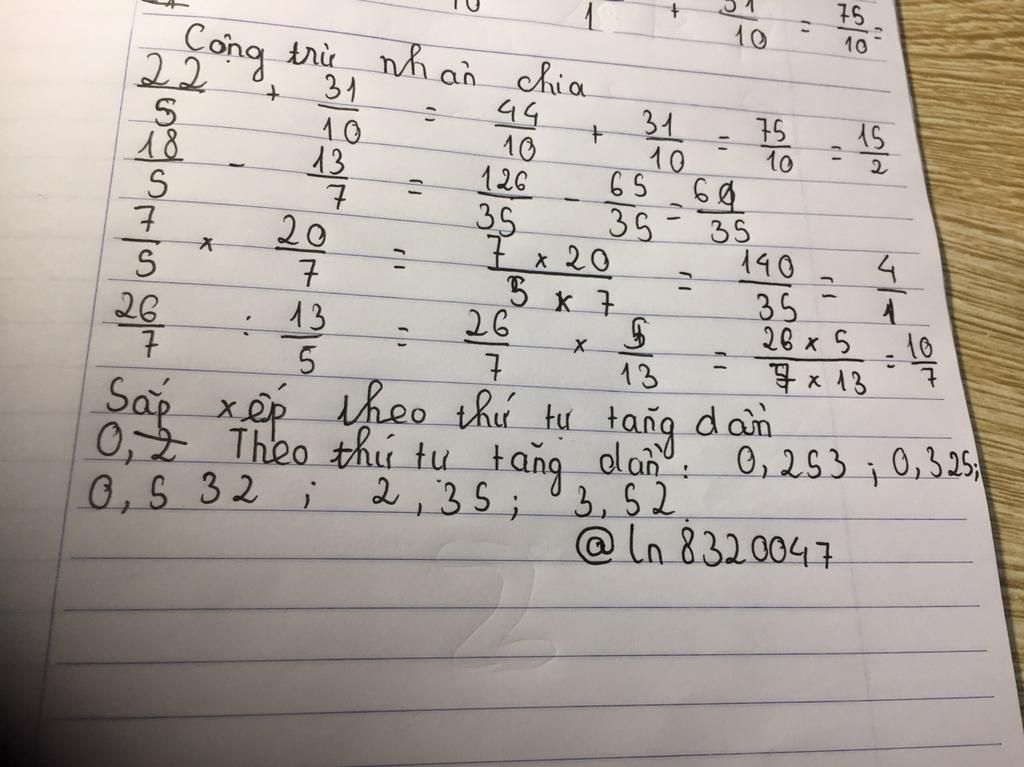 10 1 + 31/10 = 75/10 =
Cộng trừ nhan chia
22/5 + 31/10 = 44/10 + 31/10 = 75/10 = 15/2
18/5 - 13/7 = 126/35 - 65/35 = 61/35
7/5 × 20/7 = 7 × 20/5 × 7 = 140/35 = 4/1
26/7 : 13/5 = 26/7 × 5/13 = 26 × 5/7 × 13 = 10/7
Sắp xếp theo thứ tự tăng dần
0,2 Theo thứ tự tăng dần: 0,253 ; 0,325;
0,532 ; 2,35; 3,52
@ln8320047